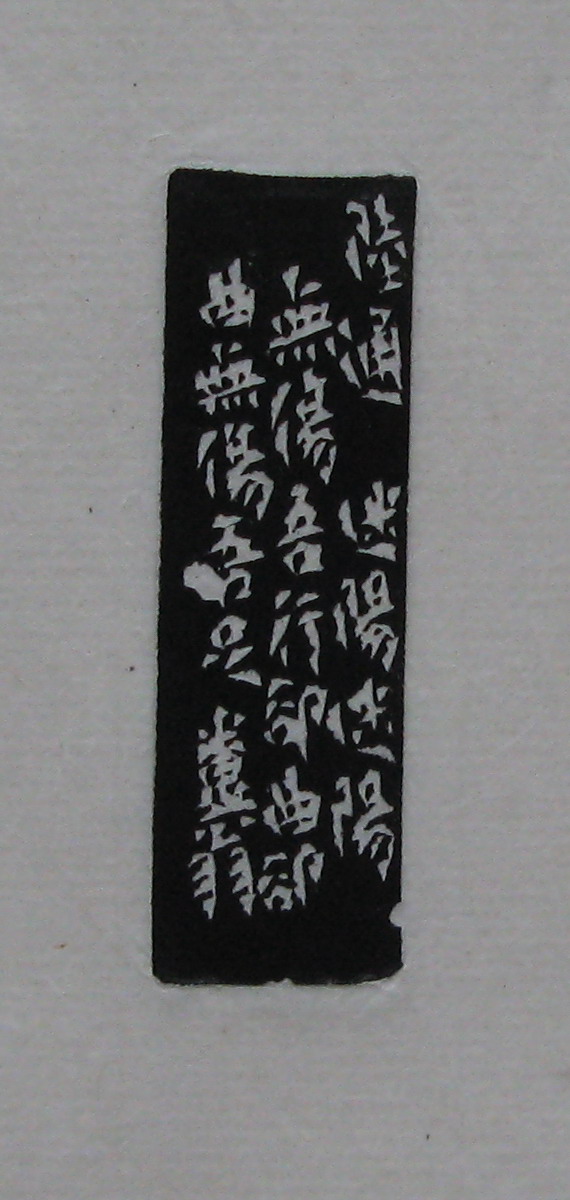 陸通 迷陽迷陽
無傷吾行卻曲卻
曲無傷吾足 翁